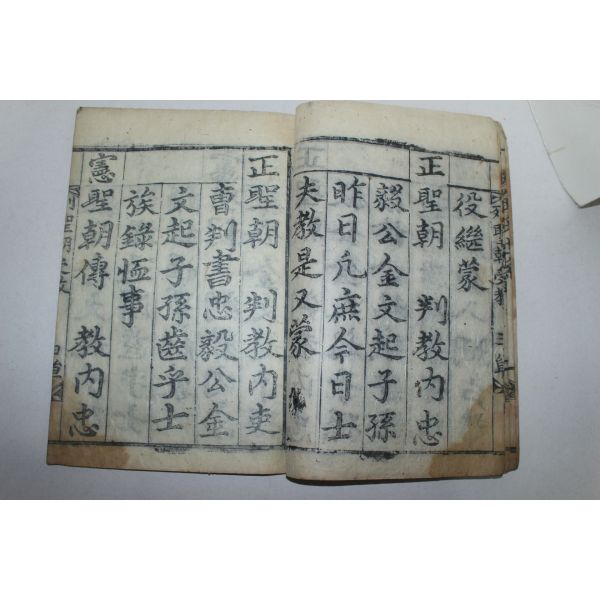 役繼蒙
正聖朝 判教內忠
毅公金文起子孫
昨日凡庶今日士
夫教是又蒙
正聖朝 判教內吏
曹判書忠毅公金
文起子孫齒乎士
族錄恤事
憲聖朝傳 教內忠